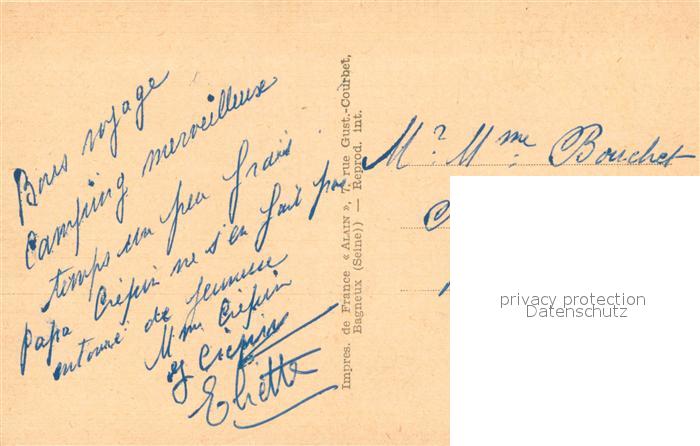 Bons voyage
Camping merveilleux
temps un peu frais
Papa Crépin ne s'en fait pas
entouré de jeunesse
Mme Crépin
Crépin
Eliette
Impres. de France « ALAIN », 7, rue Gust.-Courbet,
Bagneux (Seine)) — Reprod. int.
Mr Mme Bouchet
privacy protection
Datenschutz